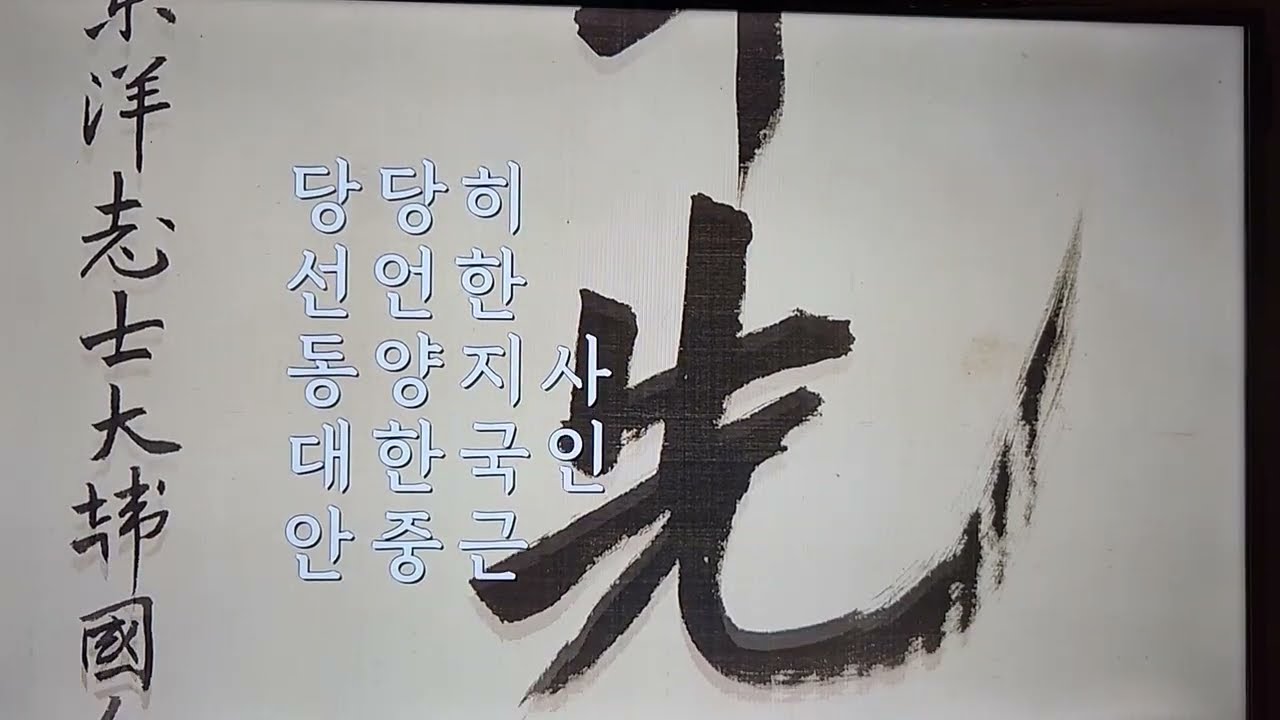 東洋志士大韓國人
당당히
선언한
동양지사
대한국인
안중근
先